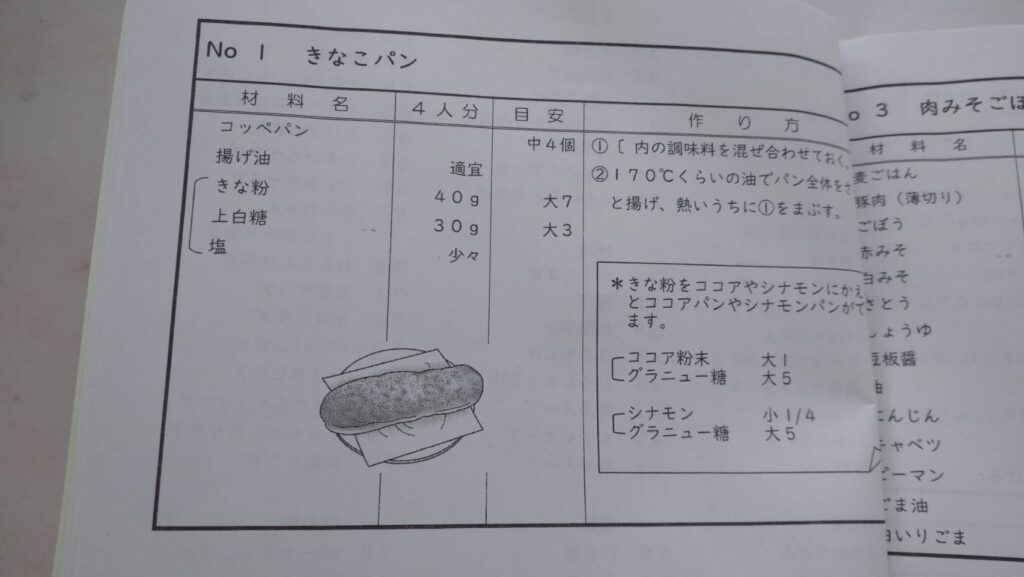 No 1 きなこパン
材料名 4人分 目安 作り方
コッペパン 中4個
揚げ油 適宜
きな粉 40g 大7
上白糖 30g 大3
塩 少々
①〔 内の調味料を混ぜ合わせておく。
②170℃くらいの油でパン全体をさ
と揚げ、熱いうちに①をまぶす。
*きな粉をココアやシナモンにかえ
とココアパンやシナモンパンがで
ます。
ココア粉末 大1
グラニュー糖 大5
シナモン 小1/4
グラニュー糖 大5
o 3 肉みそごぼ
材料名
麦ごはん
豚肉(薄切り)
ごぼう
赤みそ
白みそ
さとう
しょうゆ
豆板醤
油
にんじん
キャベツ
ピーマン
ごま油
白いりごま